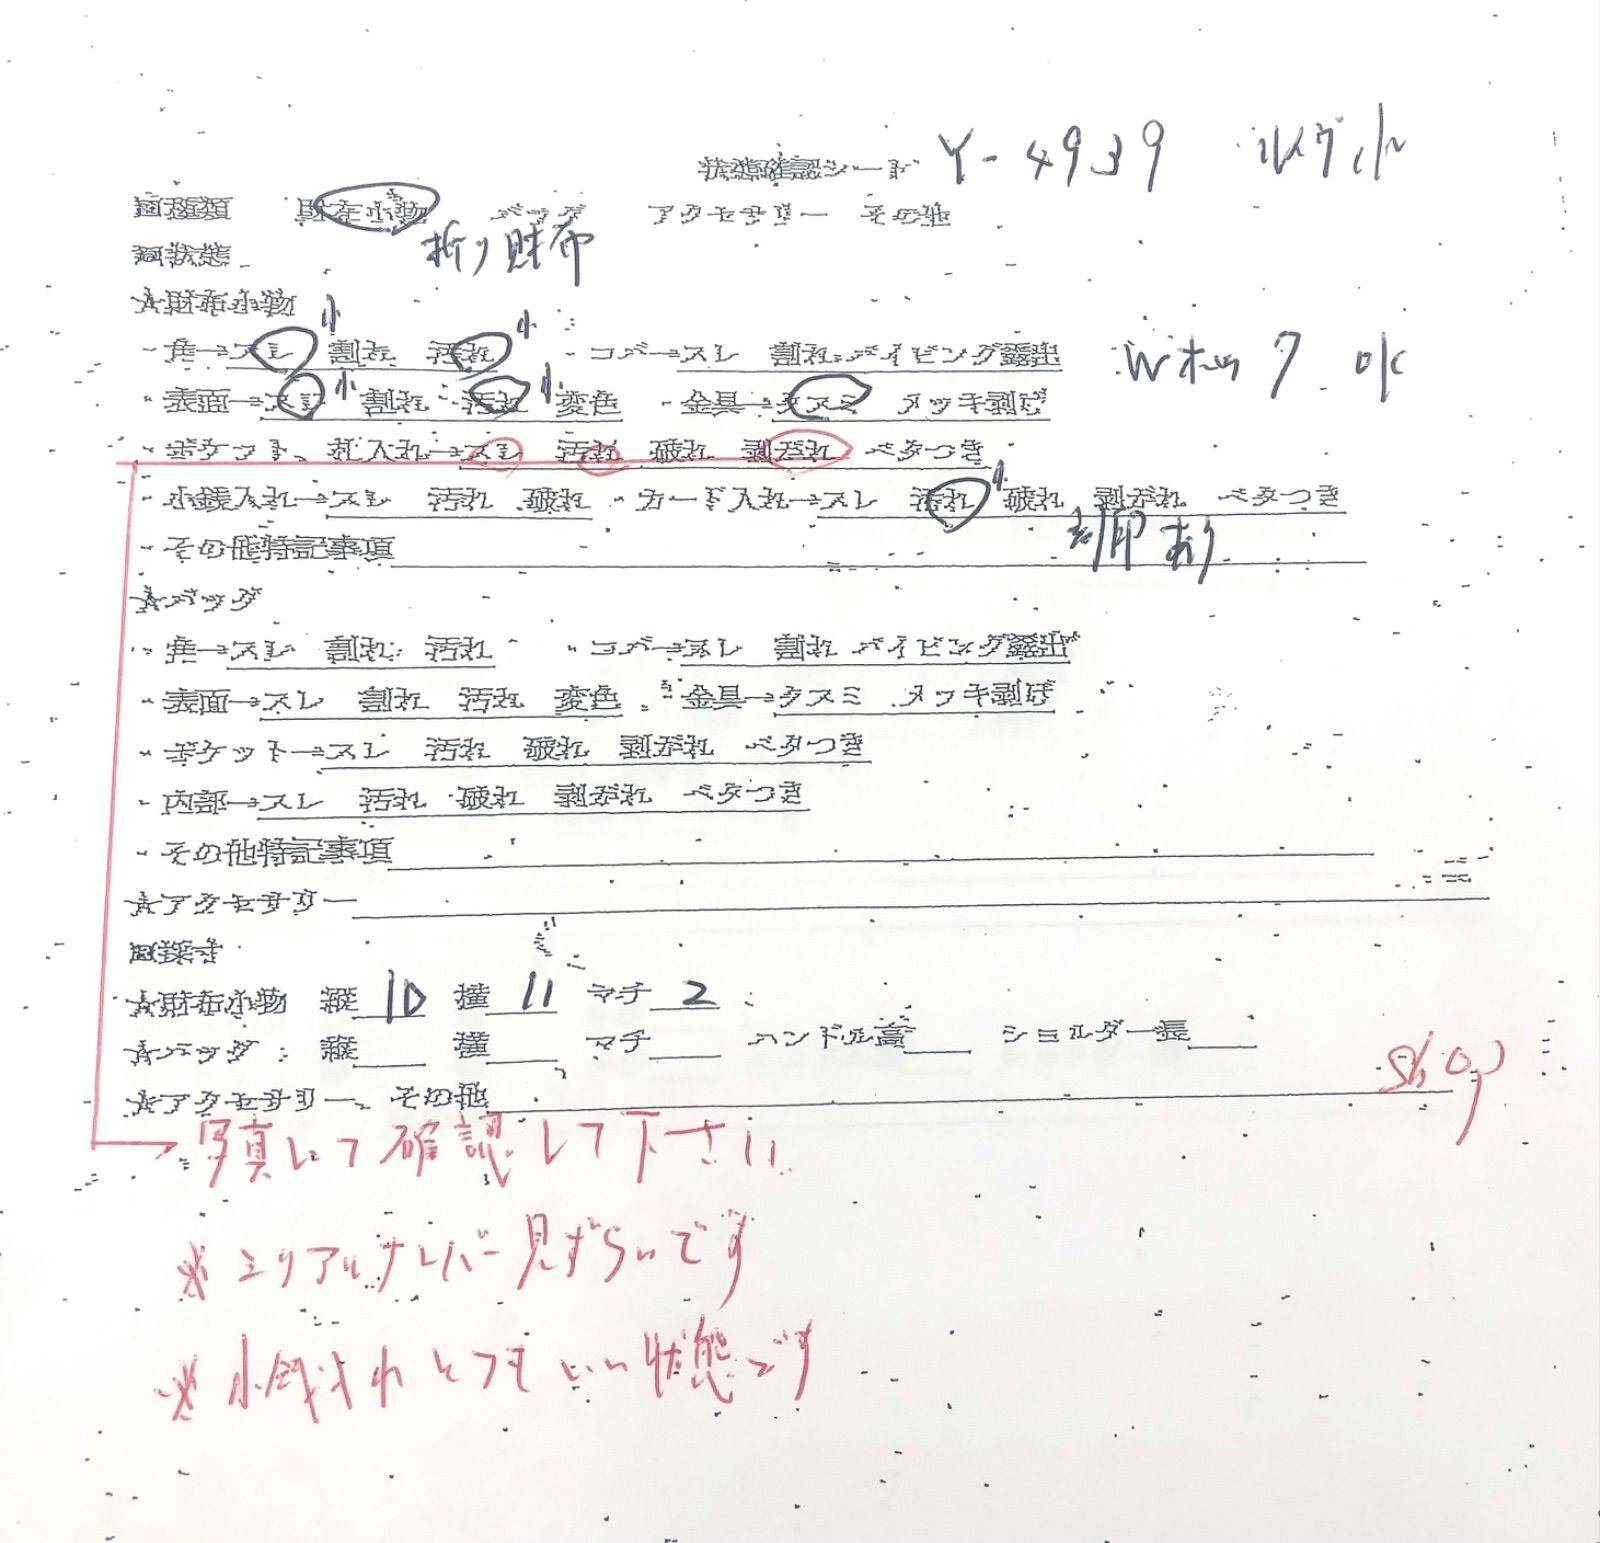 状態確認シート Y-4939
□種類 財布小物 バッグ アクセサリー その他
折り財布
□状態
☆財布小物
小 小
・角→スレ 割れ 汚れ ・コバ→スレ 割れ パイピング露出 Wホック OK
小 小
・表面→スレ 割れ 汚れ 変色 ・金具→クスミ メッキ剥げ
・ポケット、札入れ→スレ 汚れ 破れ 剥がれ ベタつき
小
・小銭入れ→スレ 汚れ 破れ ・カード入れ→スレ 汚れ 破れ 剥がれ ベタつき
・その他特記事項 刻印あり
☆バッグ
・角→スレ 割れ 汚れ ・コバ→スレ 割れ パイピング露出
・表面→スレ 割れ 汚れ 変色 ・金具→クスミ メッキ剥げ
・ポケット→スレ 汚れ 破れ 剥がれ ベタつき
・内部→スレ 汚れ 破れ 剥がれ ベタつき
・その他特記事項
☆アクセサリー
□採寸
☆財布小物 縦 10 横 11 マチ 2
☆バッグ 縦 横 マチ ハンドル高 ショルダー長
☆アクセサリー、その他
写真にて確認して下さい
※シリアルナンバー見ずらいです
※小銭入れとてもいい状態です